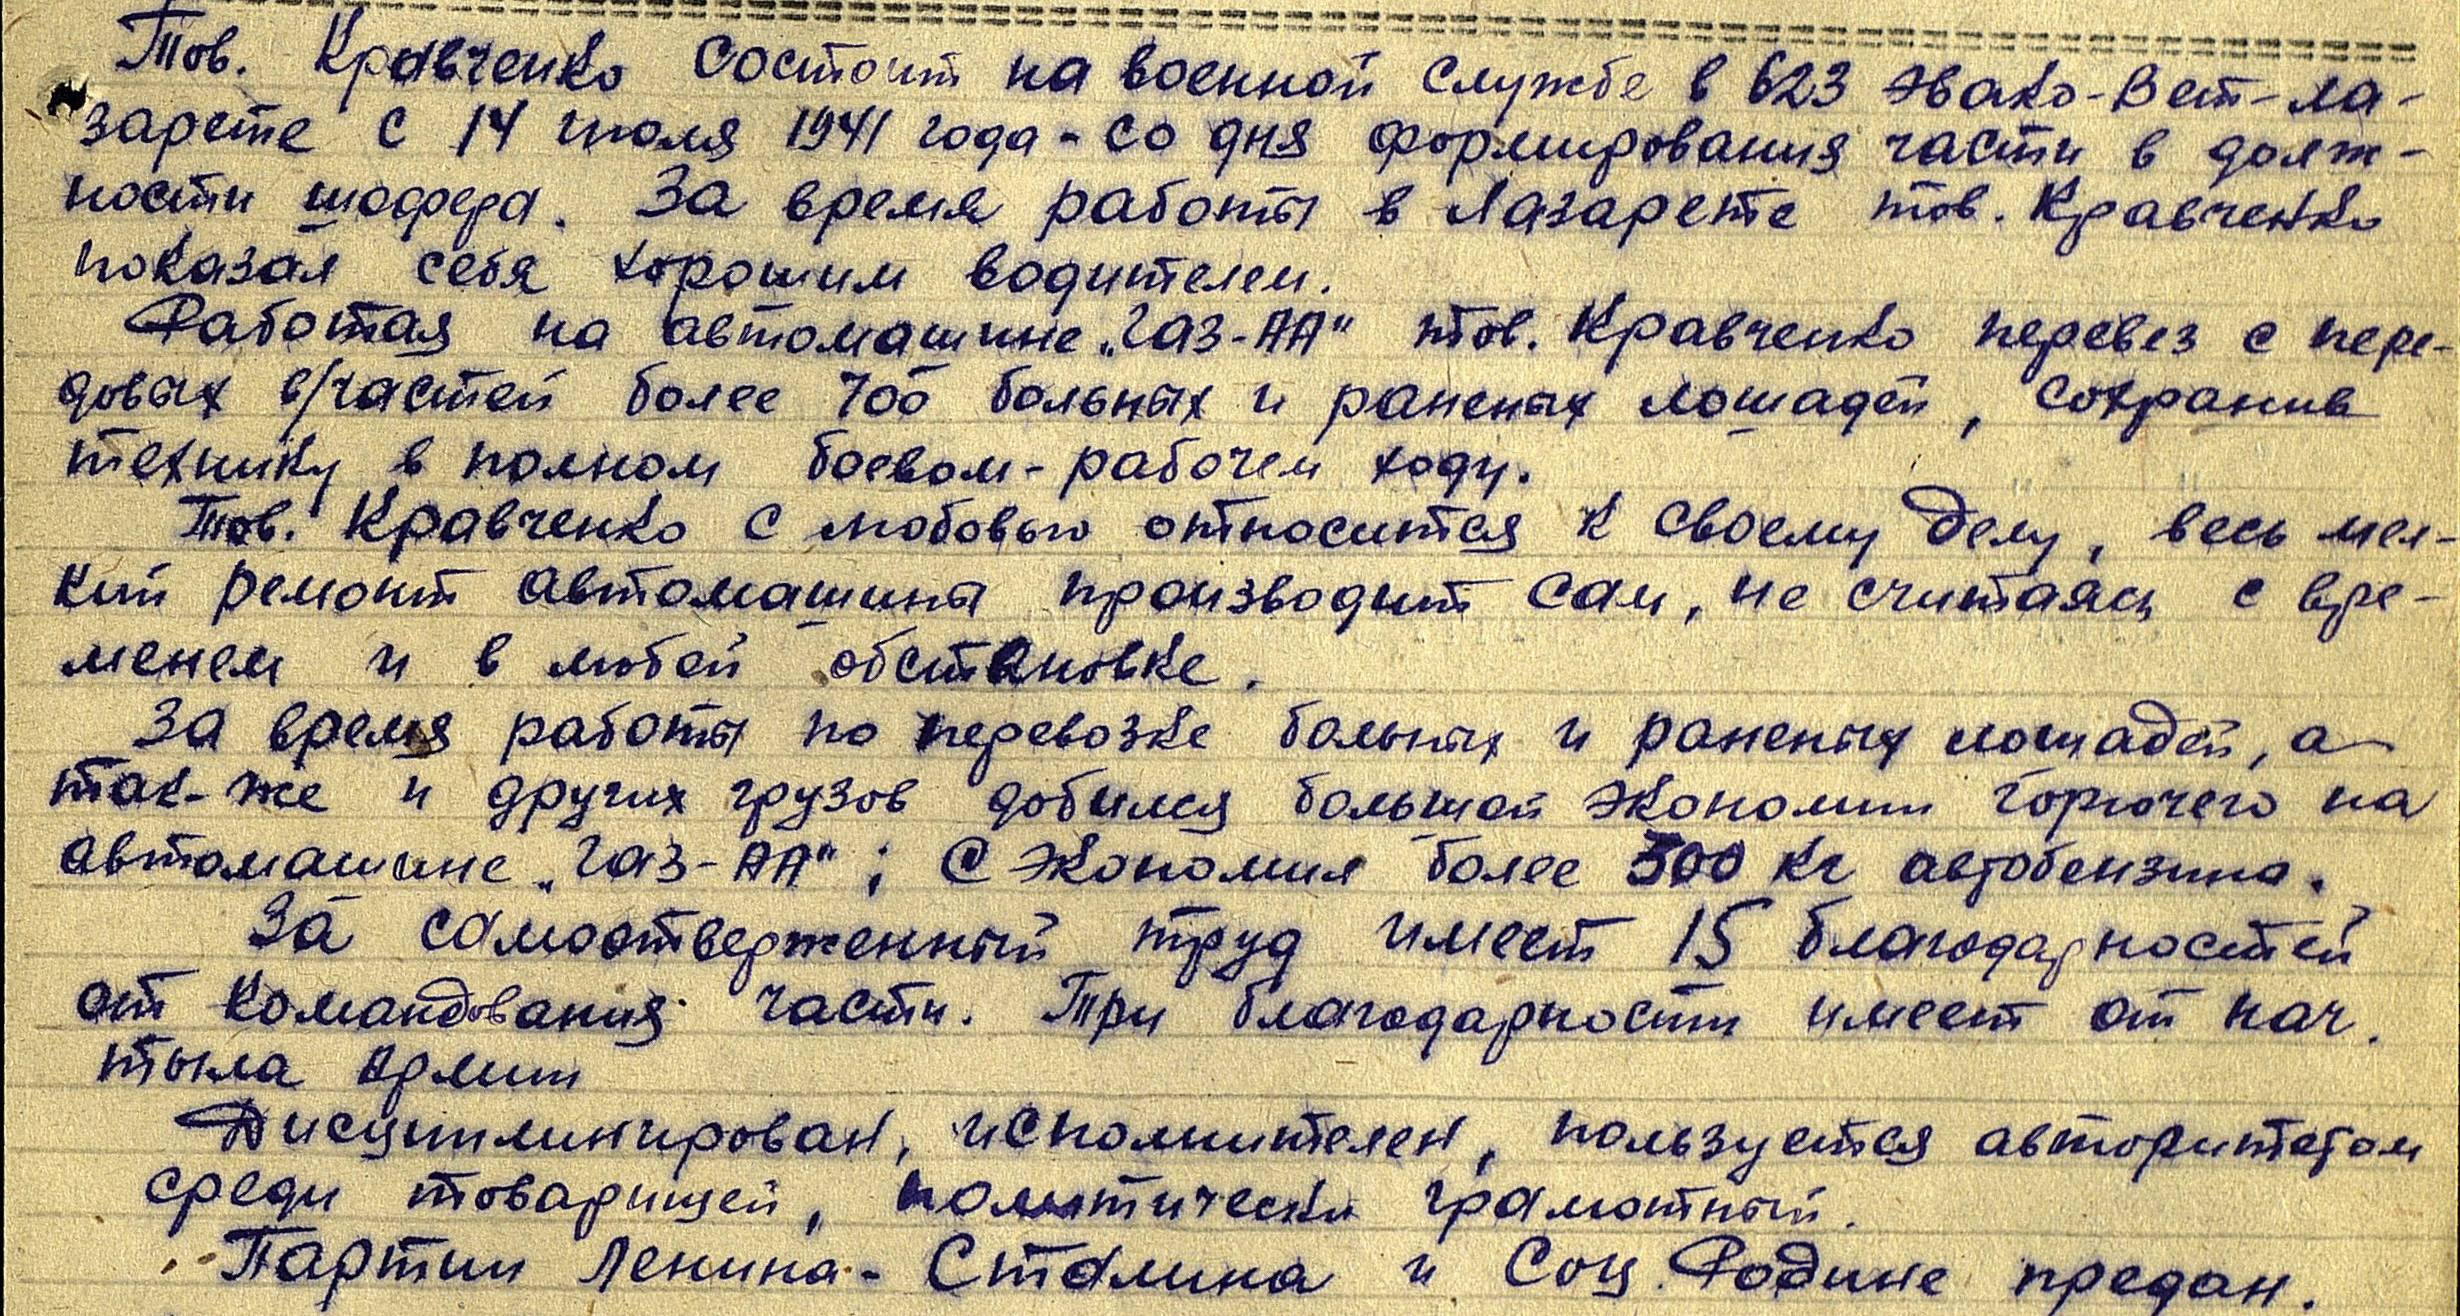 Тов. Кравченко состоит на военной службе в 623 Эвако-Вет-ла-
зарете с 14 июля 1941 года - со дня формирования части в долж-
ности шофера. За время работы в Лазарете тов. Кравченко
показал себя хорошим водителем.
Работая на автомашине „ГАЗ-АА" тов. Кравченко перевез с пере-
довых в/частей более 700 больных и раненых лошадей, сохранив
технику в полном боевом-рабочем ходу.
Тов. Кравченко с любовью относится к своему делу, весь мел-
кий ремонт автомашины производит сам, не считаясь с вре-
менем и в любой обстановке.
За время работы по перевозке больных и раненых лошадей, а
так-же и других грузов добился большой экономии горючего на
автомашине „ГАЗ-АА"; Сэкономил более 500 кг автобензина.
За самоотверженный труд имеет 15 благодарностей
от командования части. Три благодарности имеет от нач.
тыла Армии
Дисциплинирован, исполнителен, пользуется авторитетом
среди товарищей, политически грамотный.
Партии Ленина-Сталина и Соц. Родине предан.